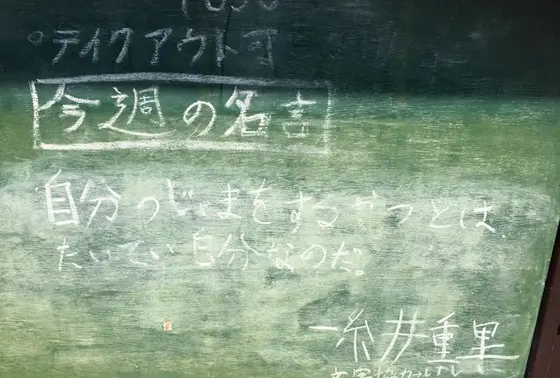 ○テイクアウト可
今週の名言
自分のじゃまをするやつとは、
たいてい自分なのだ。
―糸井重里